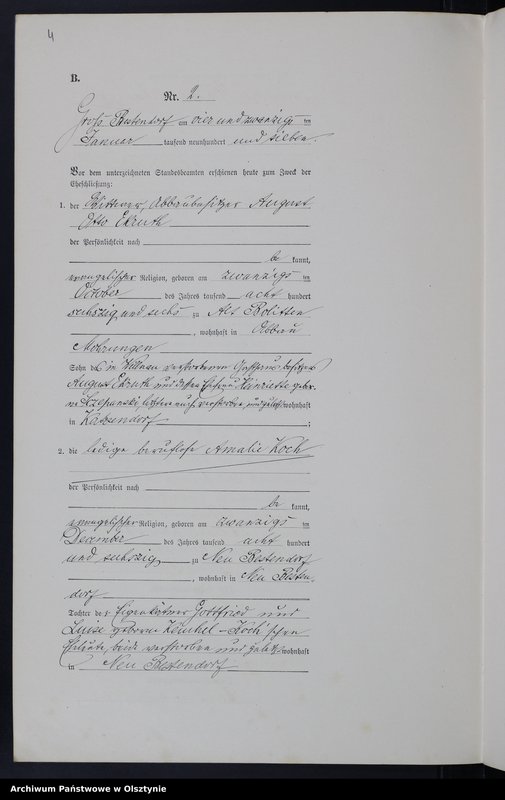 4
B.
Nr. 2.
Groß Bestendorf am vier und zwanzigsten
Januar tausend neunhundert und sieben.
Vor dem unterzeichneten Standesbeamten erschienen heute zum Zweck der
Eheschließung:
1. der Wittwer, Abbaubesitzer August
Otto
der Persönlichkeit nach
be kannt,
evangelischer Religion, geboren am zwanzigsten
October des Jahres tausend acht hundert
sechszig und sechs zu Alt Bolitten
, wohnhaft in Abbau
Mohrungen
Sohn des in verstorbenen
August und dessen Ehefrau Henriette gebo-
rene letztere auch verstorben und zuletzt wohnhaft
in
;
2. die ledige berufslose Amalie Koch
der Persönlichkeit nach
be kannt,
evangelischer Religion, geboren am zwanzigsten
December des Jahres tausend acht hundert
und sechszig zu Neu Bestendorf
, wohnhaft in Neu Besten-
dorf
Tochter der Eigenkätner Gottfried und
Luise geborene - Koch'schen
Eheleute, beide verstorben und zuletzt wohnhaft
in Neu Bestendorf
Archiwum Państwowe w Olsztynie